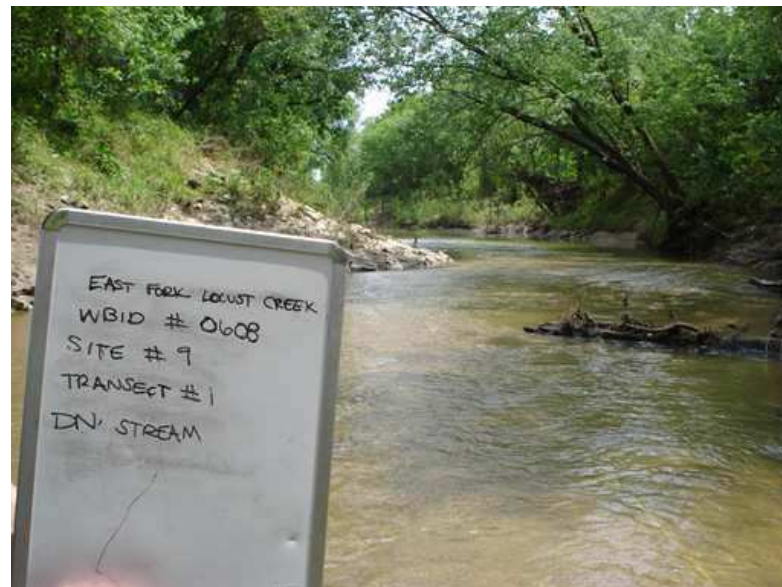 EAST FORK LOCUST CREEK
WBID # 0608
SITE # 9
TRANSECT #1
DN' STREAM